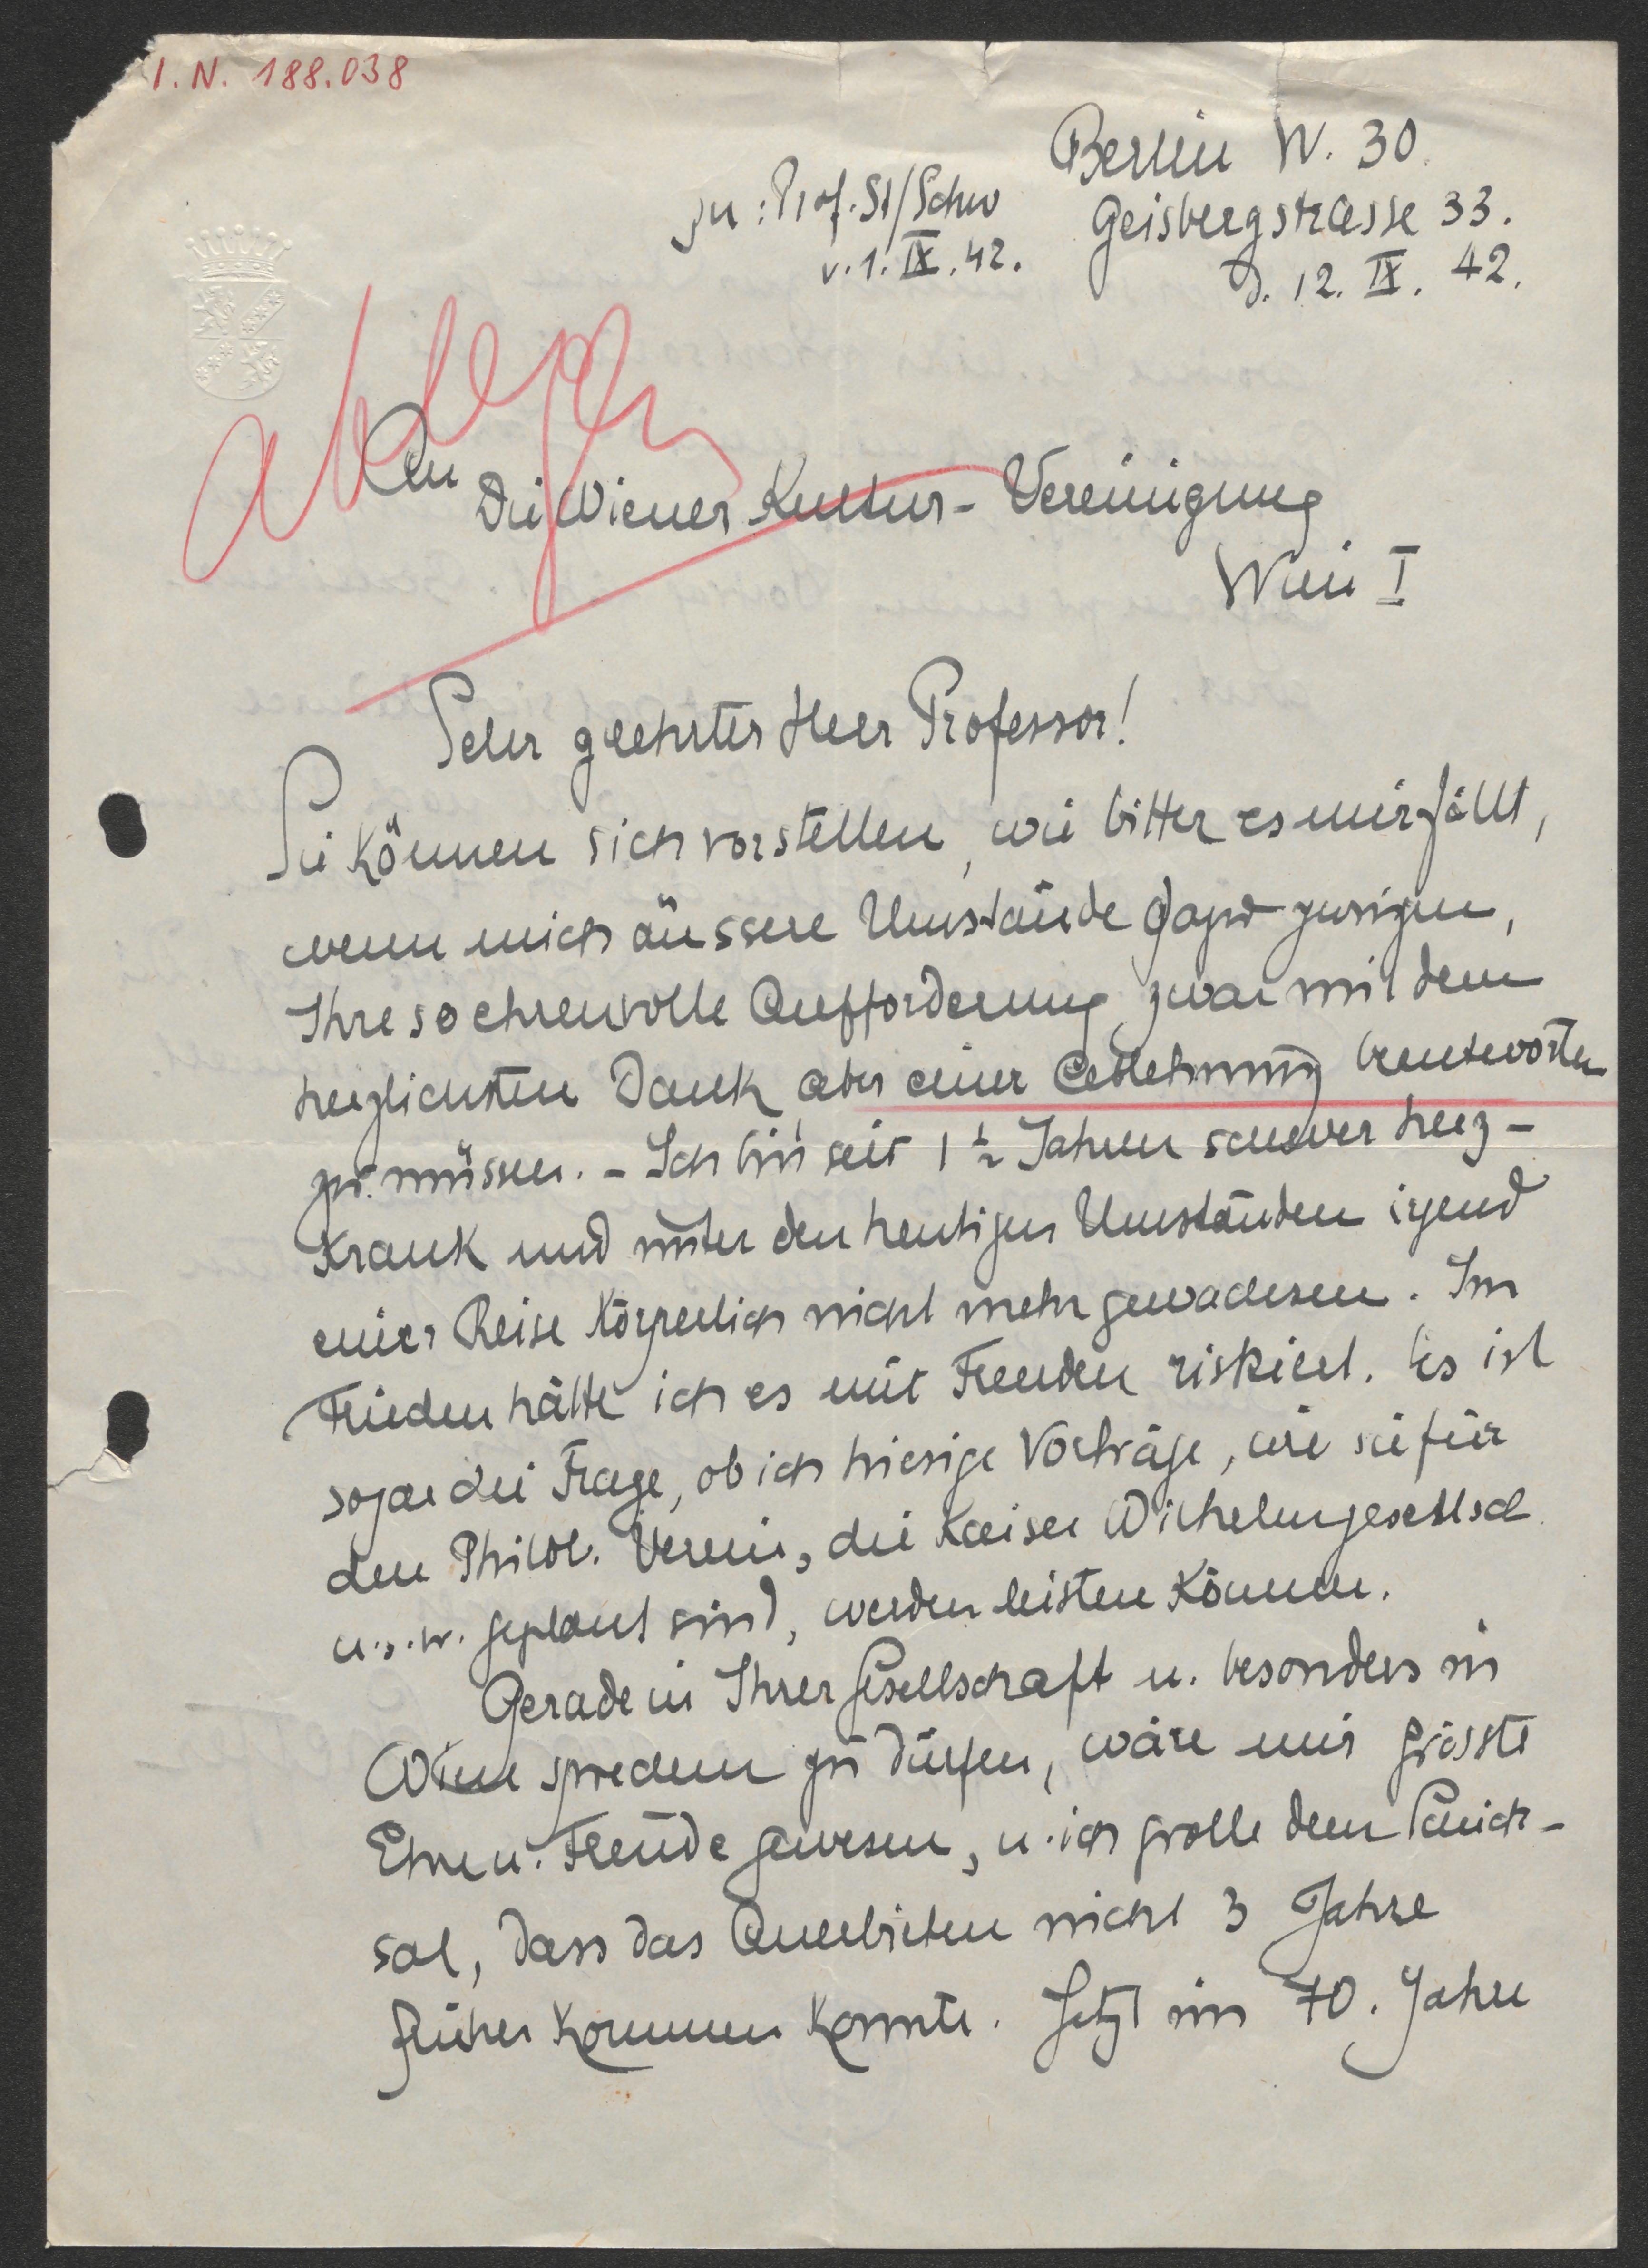 I.N. 188.038
Berlin W. 30.
zu: Prof. St/Schw
Geisbergstrasse 33.
v. 1. IX. 42.
d. 12. IX. 42.
ablegen
An
Die Wiener Kultur-Vereinigung
Wien I
Sehr geehrter Herr Professor!
Sie können sich vorstellen, wie bitter es mir fällt,
wenn mich äussere Umstände dazu zwingen,
Ihre so ehrenvolle Aufforderung zwar mit dem
herzlichsten Dank, aber einer Ablehnung beantworten
zu müssen. - Ich bin seit 1½ Jahren schwer herz-
krank und unter den heutigen Umständen irgend
einer Reise körperlich nicht mehr gewachsen. Im
Frieden hätte ich es mit Freuden riskiert. Es ist
sogar die Frage, ob ich hiesige Vorträge, wie sie für
den Philol. Verein, die Kaiser Wilhelmgesellsch
u.s.w. geplant sind, werden leisten können.
Gerade in Ihrer Gesellschaft u. besonders in
Wien sprechen zu dürfen, wäre mir grösste
Ehre u. Freude gewesen, u. ich grolle dem Schick-
sal, dass das Anerbieten nicht 3 Jahre
früher kommen konnte. Jetzt im 70. Jahre